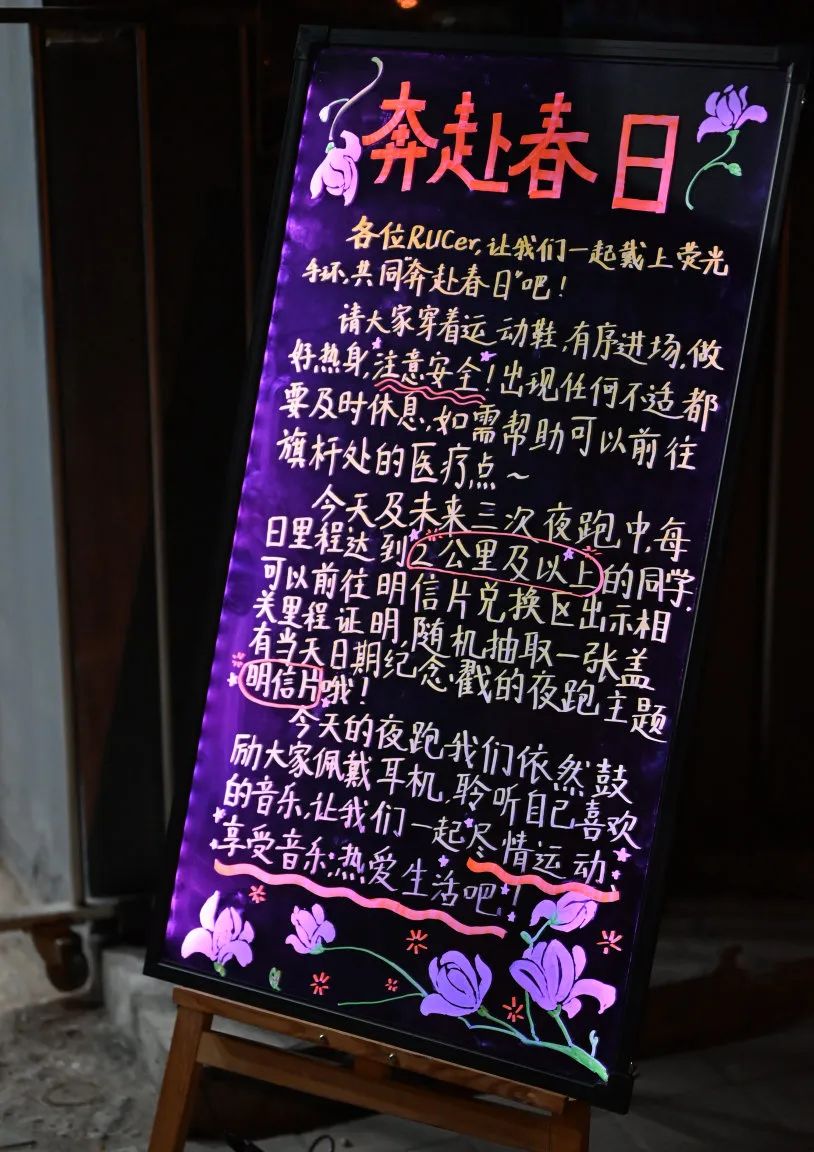 奔赴春日
各位RUCer,让我们一起戴上荧光
手环,共同"奔赴春日"吧!
请大家穿着运动鞋,有序进场,做
好热身,注意安全!出现任何不适都
要及时休息,如需帮助可以前往
旗杆处的医疗点~
今天及未来三次夜跑中,每
日里程达到2公里及以上的同学,
可以前往明信片兑换区出示相
关里程证明,随机抽取一张盖
有当天日期纪念戳的夜跑主题
明信片哦!
今天的夜跑我们依然鼓
励大家佩戴耳机,聆听自己喜欢
的音乐,让我们一起尽情运动,
享受音乐,热爱生活吧!